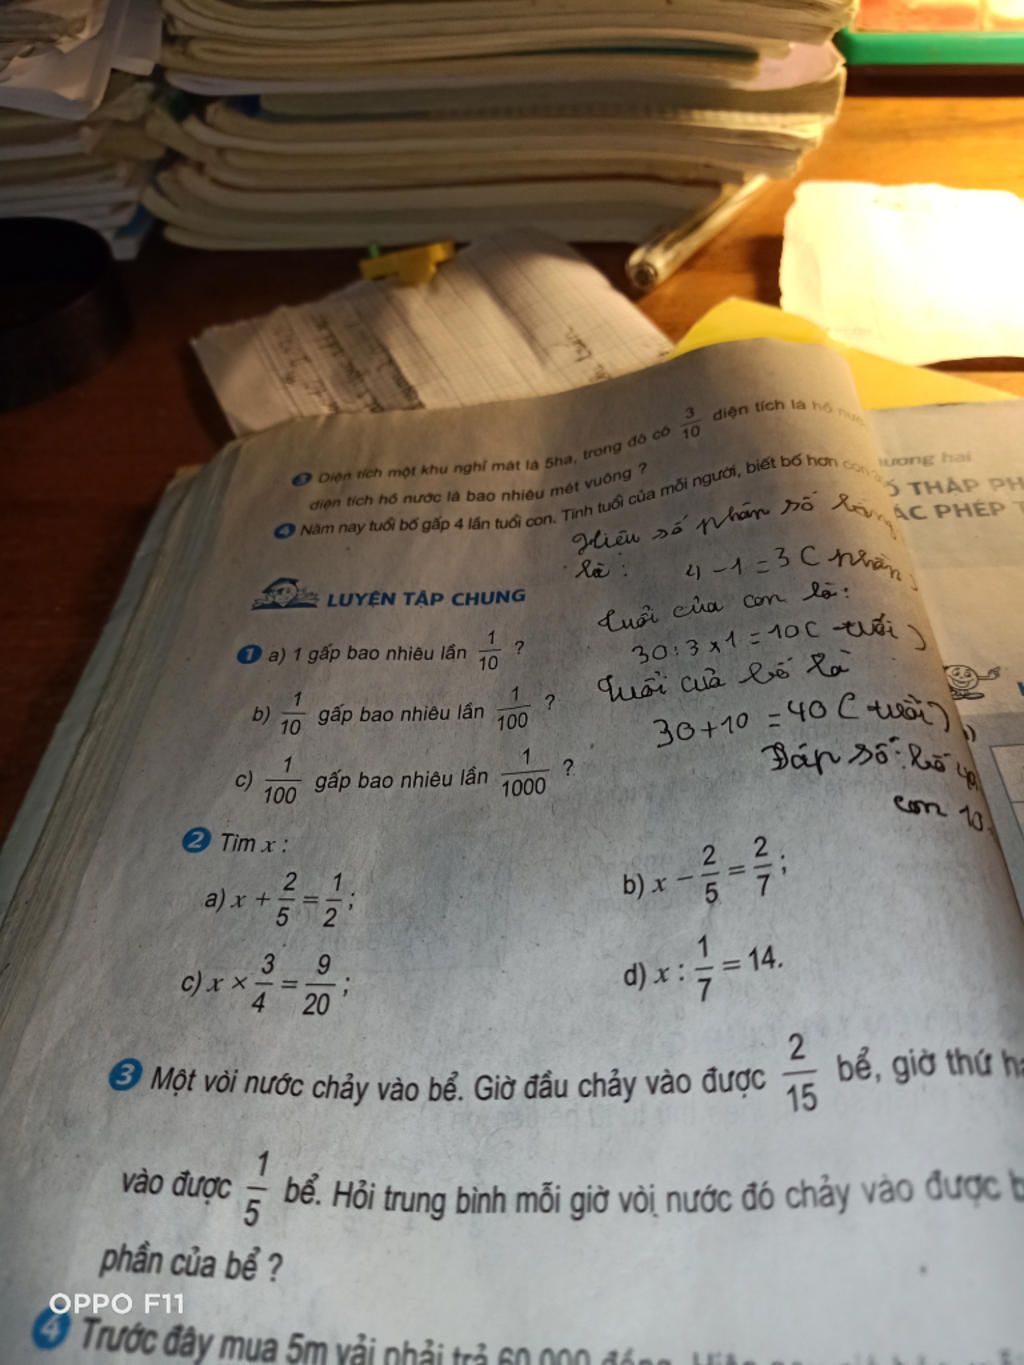 3 Diện tích một khu nghỉ mát là 5ha, trong đó có 3/10 diện tích là hồ nước
diện tích hồ nước là bao nhiêu mét vuông ?
4 Năm nay tuổi bố gấp 4 lần tuổi con. Tính tuổi của mỗi người, biết bố hơn con
Hiệu số phần số bằng
là : 4 - 1 = 3 ( phần )
tuổi của con là :
30 : 3 x 1 = 10 ( tuổi )
tuổi của bố là
30 + 10 = 40 ( tuổi )
Đáp số : bố 40
con 10.
LUYỆN TẬP CHUNG
1 a) 1 gấp bao nhiêu lần 1/10 ?
b) 1/10 gấp bao nhiêu lần 1/100 ?
c) 1/100 gấp bao nhiêu lần 1/1000 ?
2 Tìm x :
a) x + 2/5 = 1/2 ;
b) x − 2/5 = 2/7 ;
c) x × 3/4 = 9/20 ;
d) x : 1/7 = 14.
3 Một vòi nước chảy vào bể. Giờ đầu chảy vào được 2/15 bể, giờ thứ
vào được 1/5 bể. Hỏi trung bình mỗi giờ vòi nước đó chảy vào được
phần của bể ?
4 Trước đây mua 5m vải phải trả 60 000 đồng.
ương hai
Ố THẬP PH
ÁC PHÉP T
OPPO F11